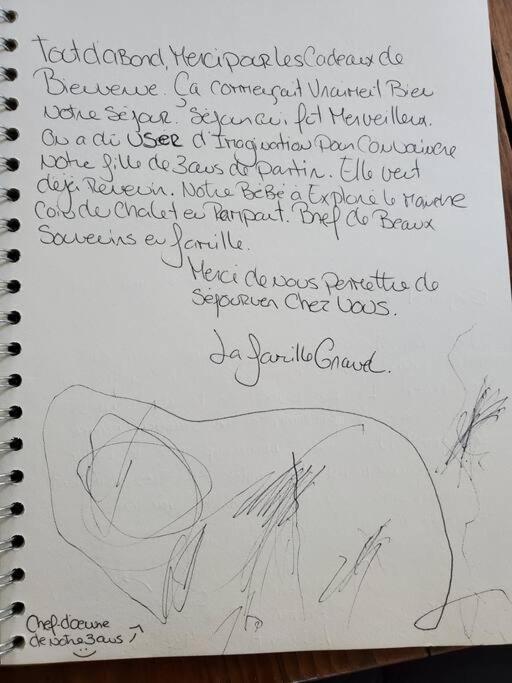 Tout d'abord, Merci pour les Cadeaux de
Bienvenue. Ça commençait Vraiment Bien
Notre Séjour. Séjour qui fut Merveilleux.
On a dû USER d'Imagination Pour Convaincre
Notre fille de 3 ans de Partir. Elle veut
déjà Revenir. Notre Bébé à Exploré le Moindre
Coin du Chalet en Rampant. Bref de Beaux
Souvenirs en famille.
Merci de nous Permettre de
Séjourner Chez Vous.
La famille Gravel.
Chef-d'œuvre
de Notre 3 ans